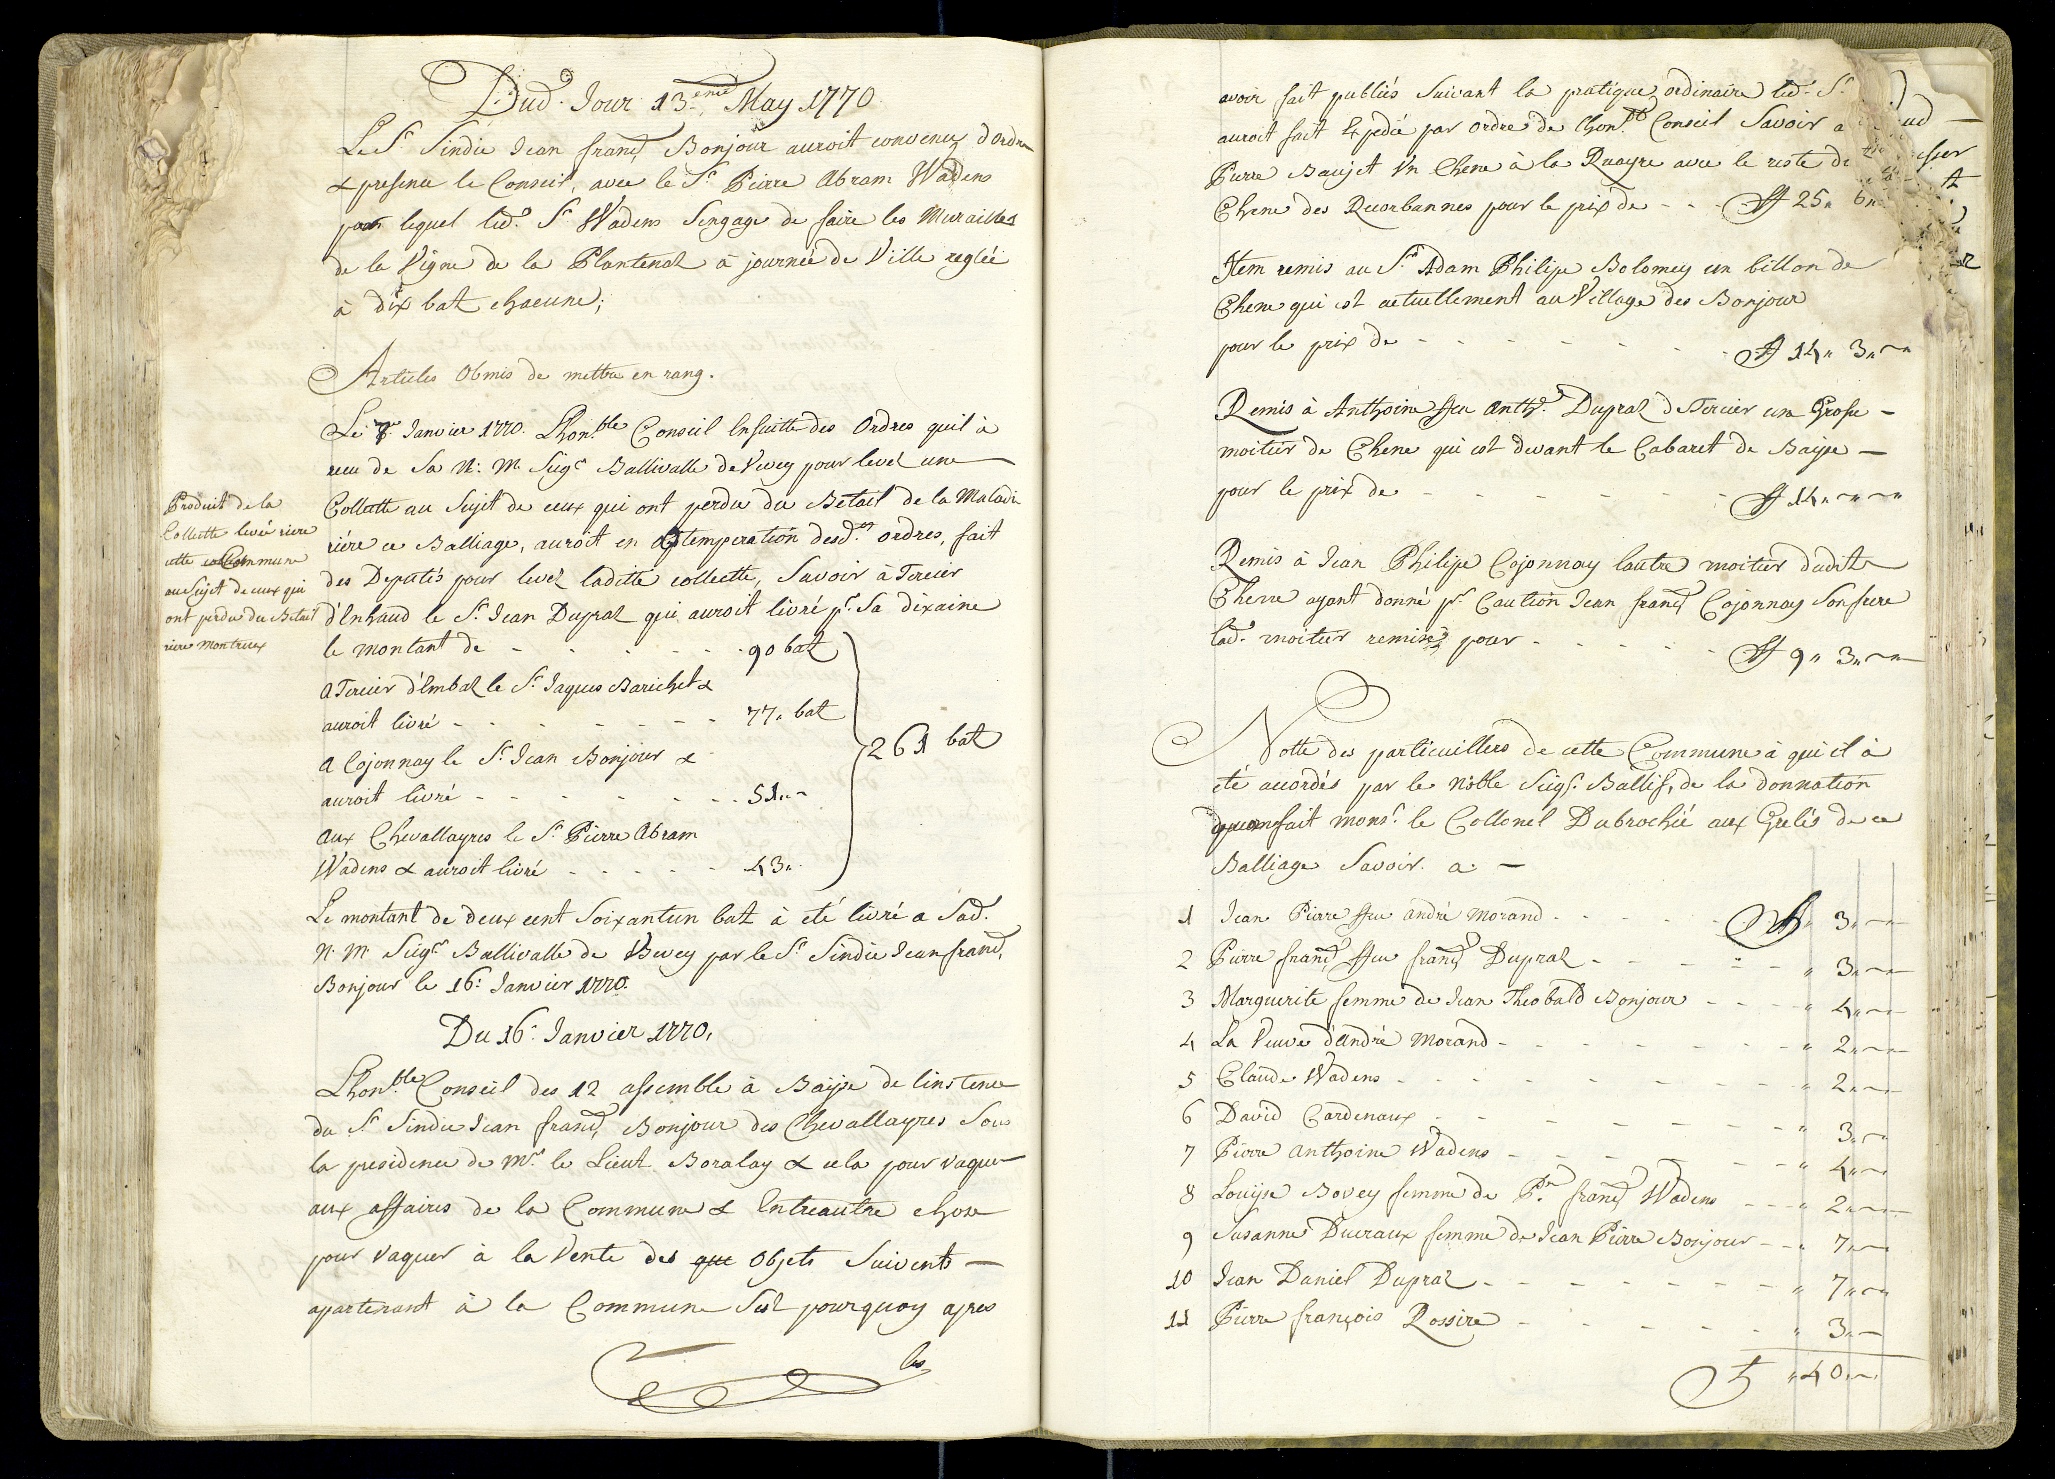 Dud. Jour 13.eme May 1770
Le Sr. Sindic Jean franç Bonjour auroit convenu, d'ordre
& presence le Conseil, avec le Sr. Pierre Abram Wadens
par lequel led. Sr Wadens s'engage de faire les Murailles
de la Vigne de la Plantenaz à journée de Ville reglée
à dix bat chacune;
Articles Obmis de mettre en rang.
Le Janvier 1770. Lhon.ble Conseil Ensuitte des Ordres quil à
receu de Sa N: M. Seigr Ballivalle de Vevey pour lever une
Collecte au Sujet de ceux qui ont perdu du Betail de la Maladie
riere ce Balliage, auroit en obtemperation desd.es ordres, fait
des Deputés pour lever laditte collecte, Savoir à Tercier
d'Enhaud le Sr. Jean Dupraz qui auroit livré pr. Sa dixaine
le montant de - - - - - - 90 batz
A Tercier d'Embaz le Sr. Jaques Barichet &
auroit livré - - - - - - - 77. bat
A Cojonnay le Sr. Jean Bonjour &
auroit livré - - - - - - - 51.. -
Aux Chevallayres le Sr. Pierre Abram
Wadens & auroit livré - - - - - 43..
261 batz
Produit de la
Collecte levée riere
cette Commune
au Sujet de ceux qui
ont perdu du Betail
riere Montreux
Le montant de deux cent Soixantun batz à eté livré a Sad.
N. M Seigr Ballivalle de Vevey par le Sr. Sindic Jean franç.
Bonjour le 16: Janvier 1770.
Du 16. Janvier 1770.
Lhon.ble Conseil des 12 assemble à Baijse de linstence
du Sr. Sindic Jean franç. Bonjour des Chevallayres Sous
la presidence de Mr. le Lieut. Boralay & cela pour vaquer
aux affaires de la Commune & Entreautre chose
pour vaquer à la Vente des que Objets Suivents -
apartenant à la Commune Sest pourquoy apres
les
avoir fait publiés Suivant la pratique ordinaire led. Sr
auroit fait Expedié par ordre de Lhon.ble Conseil Savoir a
Pierre Baujet Un Chene à la Ruayre avec le reste de
Chene des Quorbannes pour le prix de - - - ff 25" 6"
Item remis au Sr. Adam Philipe Bolomey un billon de
Chene qui est actuellement au Village des Bonjour
pour le prix de - - - - - - - ff 14" 3"
Remis à Anthoine ffeu Anth.e Dupraz d Tercier un Grosse -
moitier de Chene qui est devant le Cabaret de Baijse -
pour le prix de - - - - - - - ff 14"
Remis à Jean Philipe Cojonnay lautre moitier dudit
Chene ayant donné pr. Caution Jean franç Cojonnay Son frere
lad. moitier remise pour - - - - - ff 9" 3"
Notte des particuilliers de cette Commune à qui il à
eté accordés par le Noble Seigr. Ballif, de la donnation
quen fait Monsr. le Collonel Dubrochée aux Grelés de ce
Balliage Savoir. a -
1 Jean Pierre ffeu André Morand - - - - - ff " 3"
2 Pierre franç ffeu franç Dupraz - - - - - " 3"
3 Marguerite femme de Jean Theobald Bonjour - - - " 4"
4 La Veuve d'André Morand - - - - - - " 2"
5 Claude Wadens - - - - - - - " 2"
6 David Cardinaux - - - - - - - " 3"
7 Pierre Anthoine Wadens - - - - - - " 4"
8 Louijse Bovey femme de Pr. franç Wadens - - - " 2"
9 Susanne Ducraux femme de Jean Pierre Bonjour - - " 7"
10 Jean Daniel Dupraz - - - - - - - " 7"
11 Pierre françois Rossire - - - - - " 3"
ff " 40"